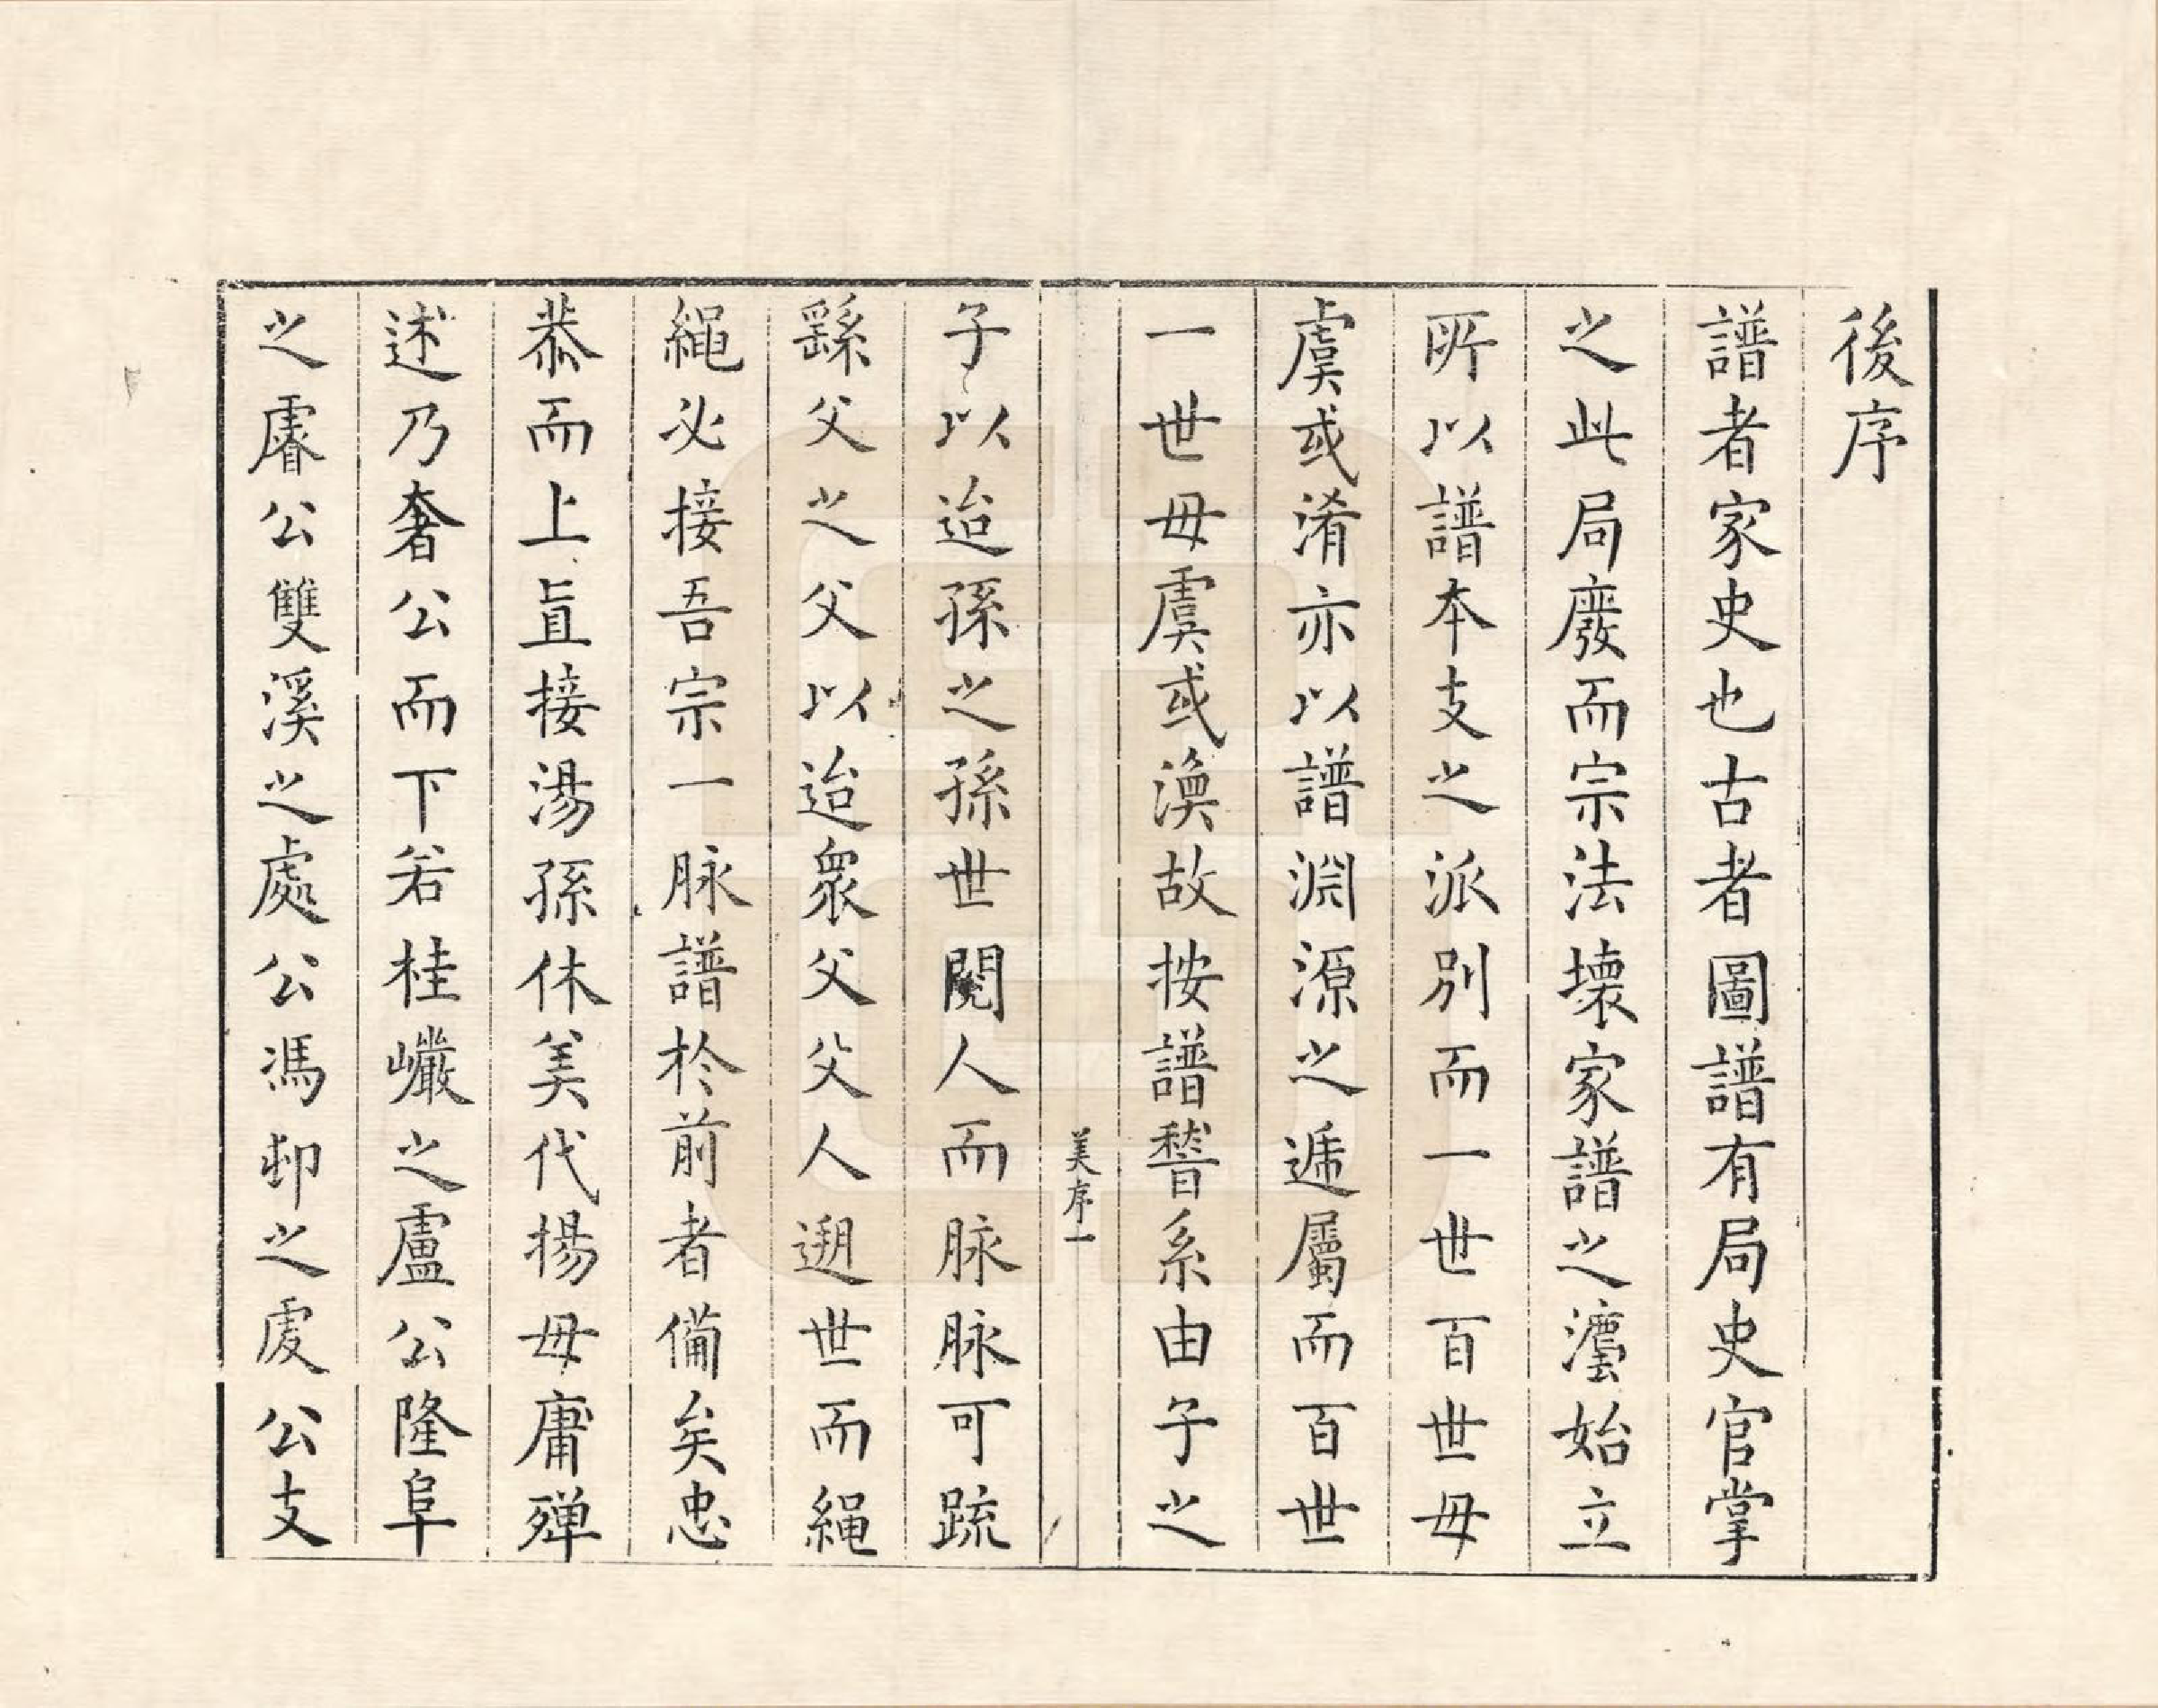 後序
譜者家史也古者圖譜有局史官掌
之此局廢而宗法壞家譜之灋始立
所以譜本支之派別而一世百世毋
虞或淆亦以譜淵源之遞屬而百世
一世毋虞或渙故按譜稽系由子之
美序一
子以迨孫之孫世閱人而脉脉可䟽
繇父之父以迨衆父父人遡世而繩
繩必接吾宗一脉譜於前者備矣忠
恭而上直接湯孫休美代揚毋庸殫
述乃奢公而下若桂巘之盧公隆阜
之睿公雙溪之處公馮邨之虔公支